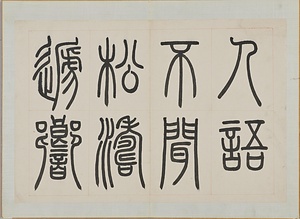 人語
不聞
松濤
遞響